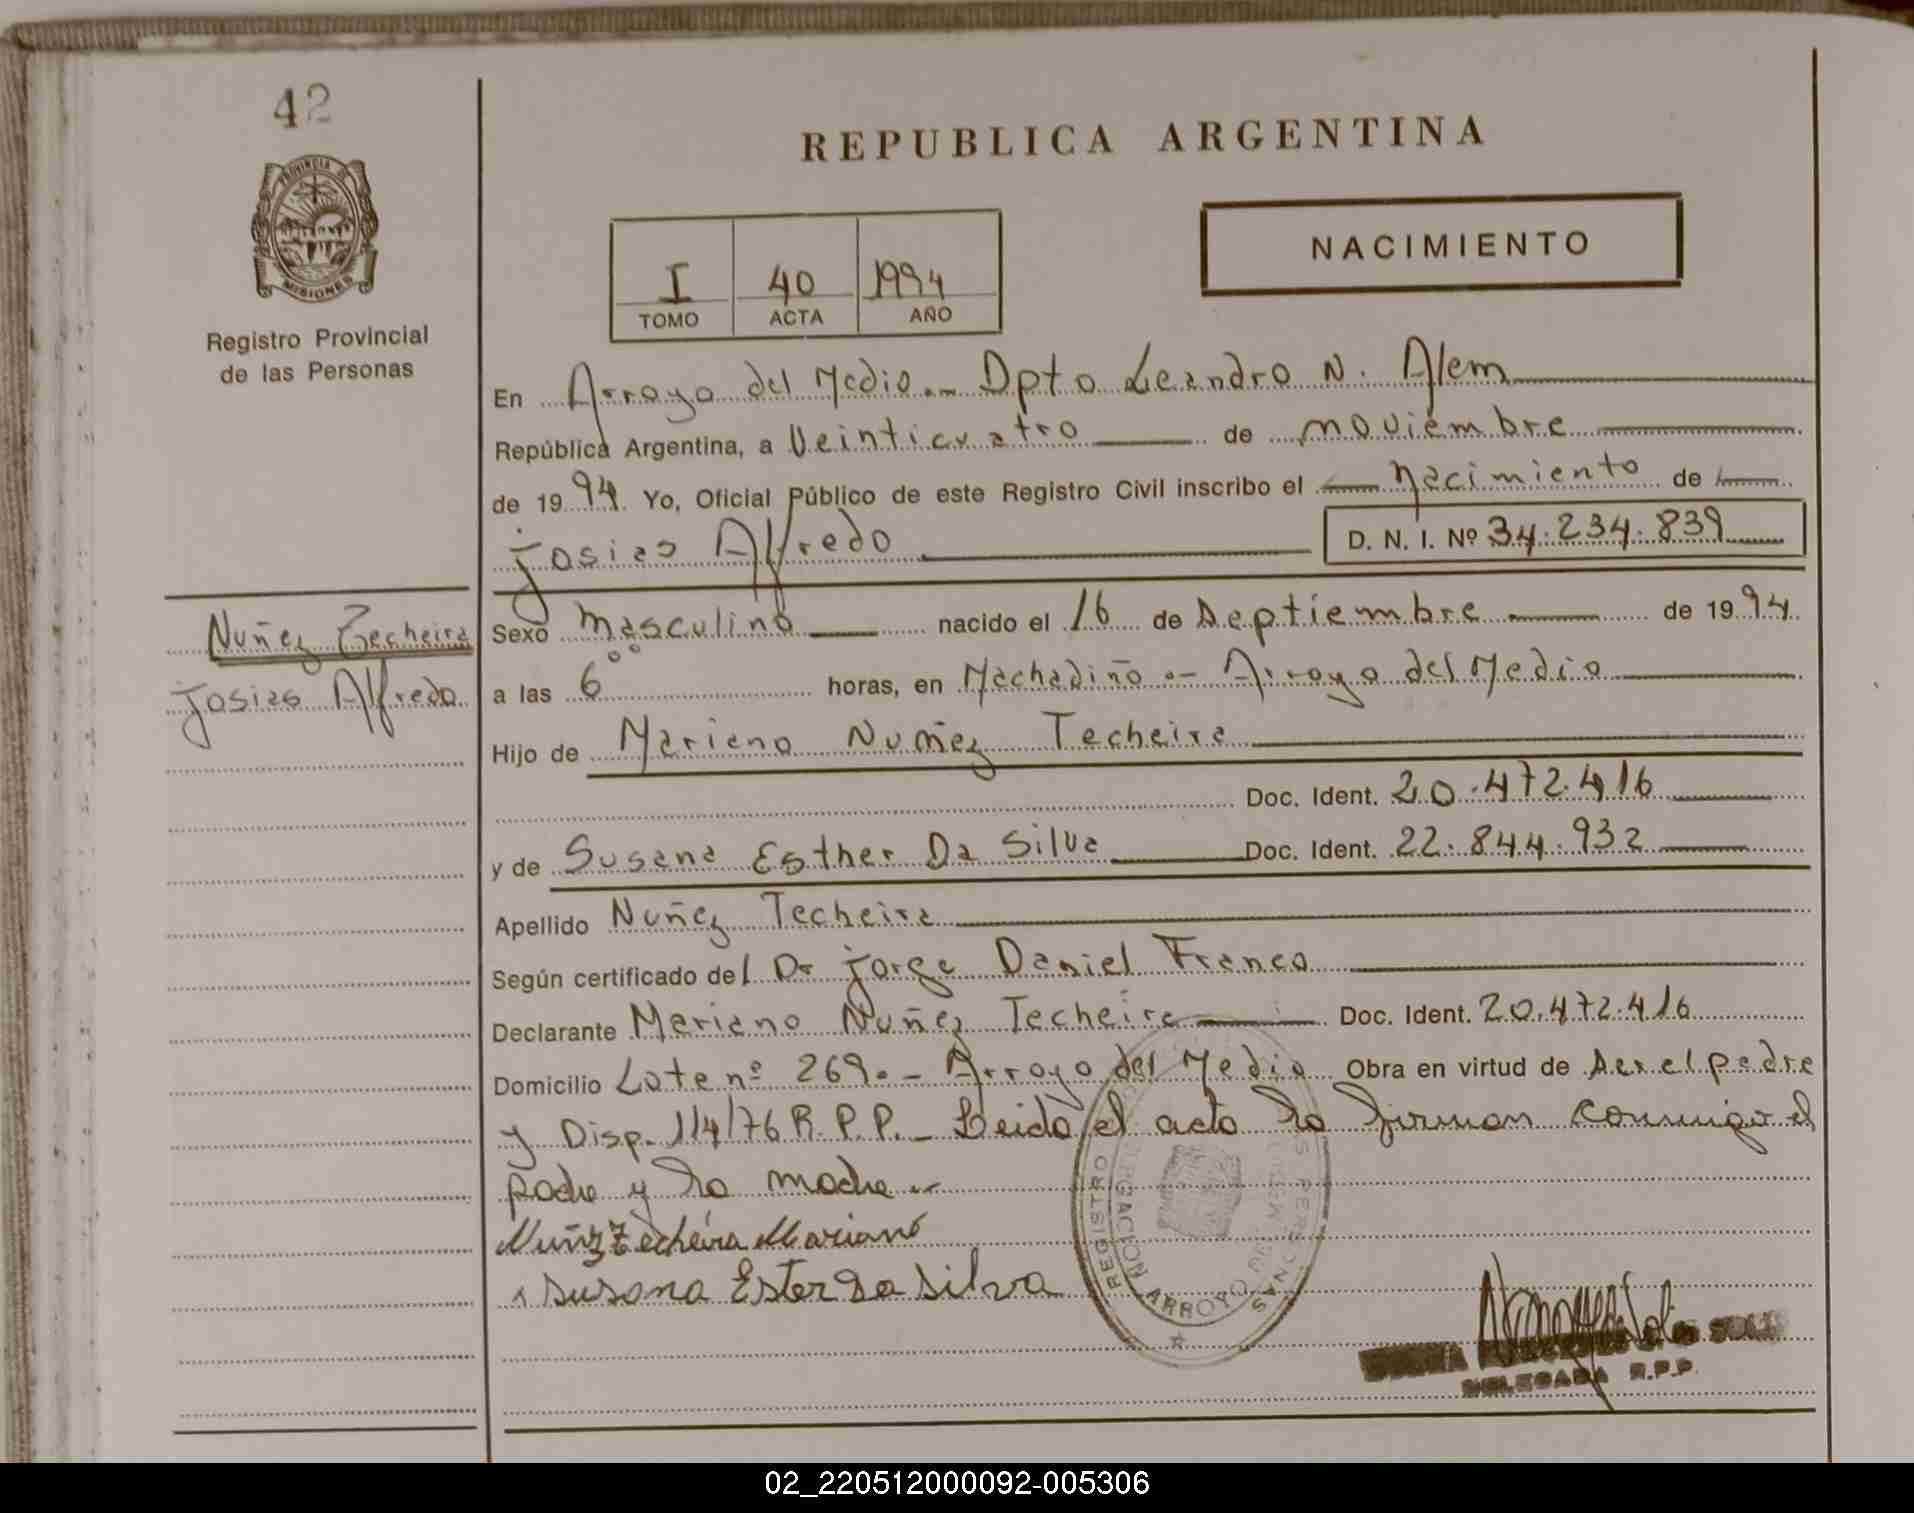 42
PROVINCIA DE
MISIONES
Registro Provincial
de las Personas
REPUBLICA ARGENTINA
NACIMIENTO
I 40 1994
TOMO ACTA AÑO
En Arroyo del Medio.- Dpto Leandro N. Alem
República Argentina, a Veinticuatro de noviembre
de 1994 Yo, Oficial Público de este Registro Civil inscribo el nacimiento de
Josias Alfredo D. N. I. Nº 34.234.839
Nuñez Techeira
Josias Alfredo
Sexo Masculino nacido el 16 de Septiembre de 1994
a las 6⁰⁰ horas, en Machadiño.- Arroyo del Medio
Hijo de Mariano Nuñez Techeira
Doc. Ident. 20.472.416
y de Susana Esther Da Silva Doc. Ident. 22.844.932
Apellido Nuñez Techeira
Según certificado del Dr Jorge Daniel Franco
Declarante Mariano Nuñez Techeira Doc. Ident. 20.472.416
Domicilio Lote nº 269.- Arroyo del Medio Obra en virtud de ser el padre
y Disp. 1/4/76 R.P.P.- Leida el acta la firman conmigo el
padre y la madre.-
Nuñz Techeira Mariano
Susana Ester Da Silva
REGISTRO
ARROYO DEL
DELEGADA R.P.P.
02_220512000092-005306